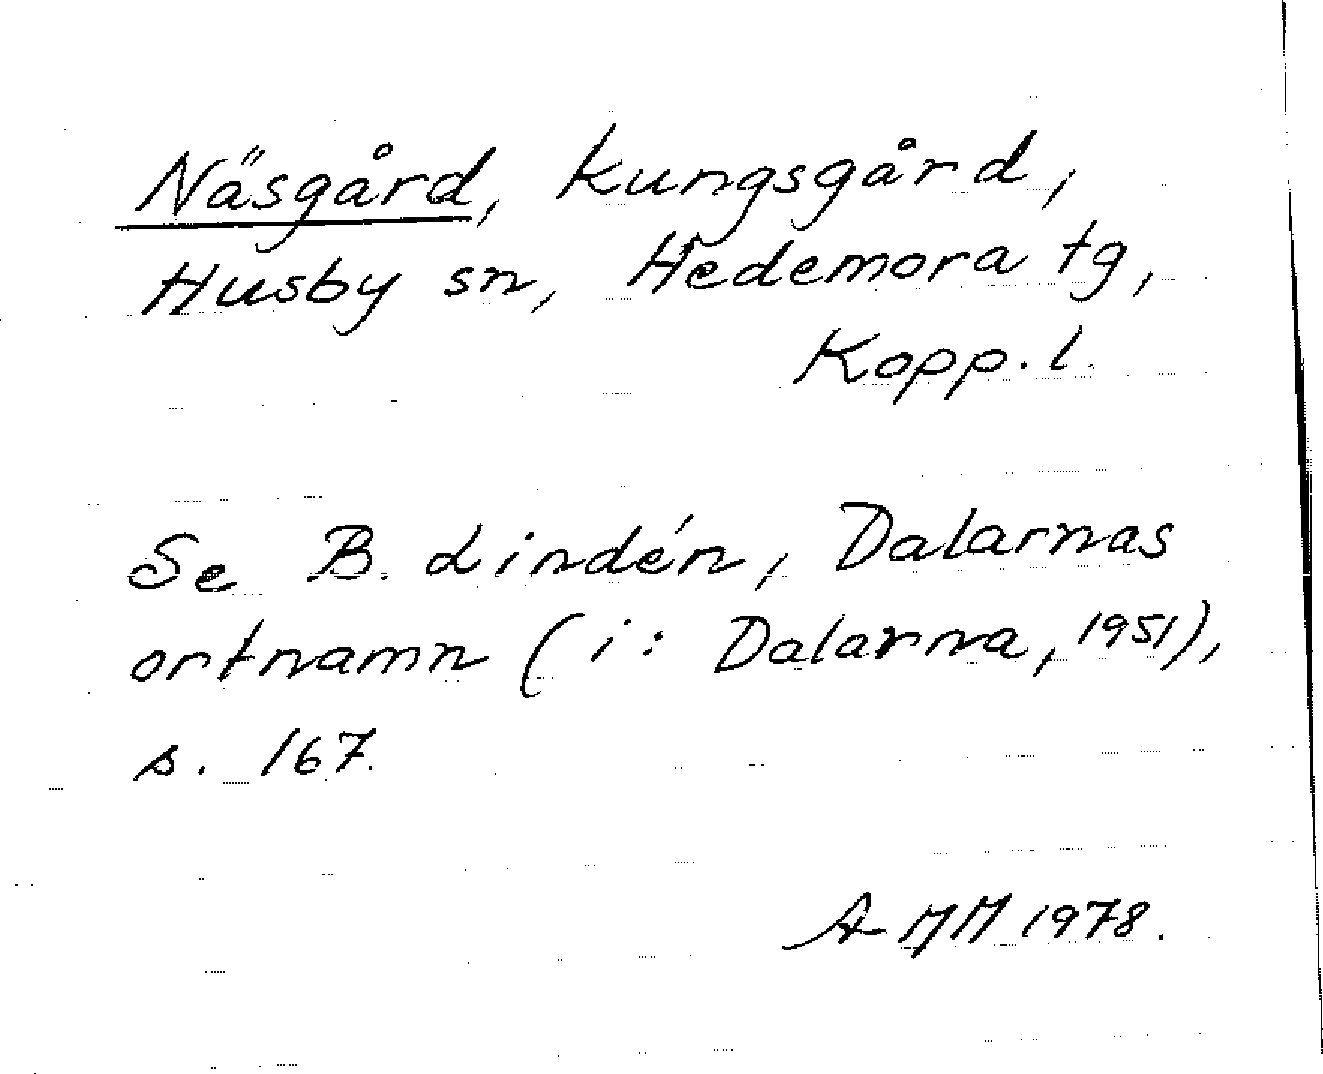 Näsgård, kungsgård,
Husby sn, Hedemora tg,
Kopp. l.
Se B. Lindén, Dalarnas
ortnamn (i: Dalarna, 1951),
s. 167.
A MM 1978.